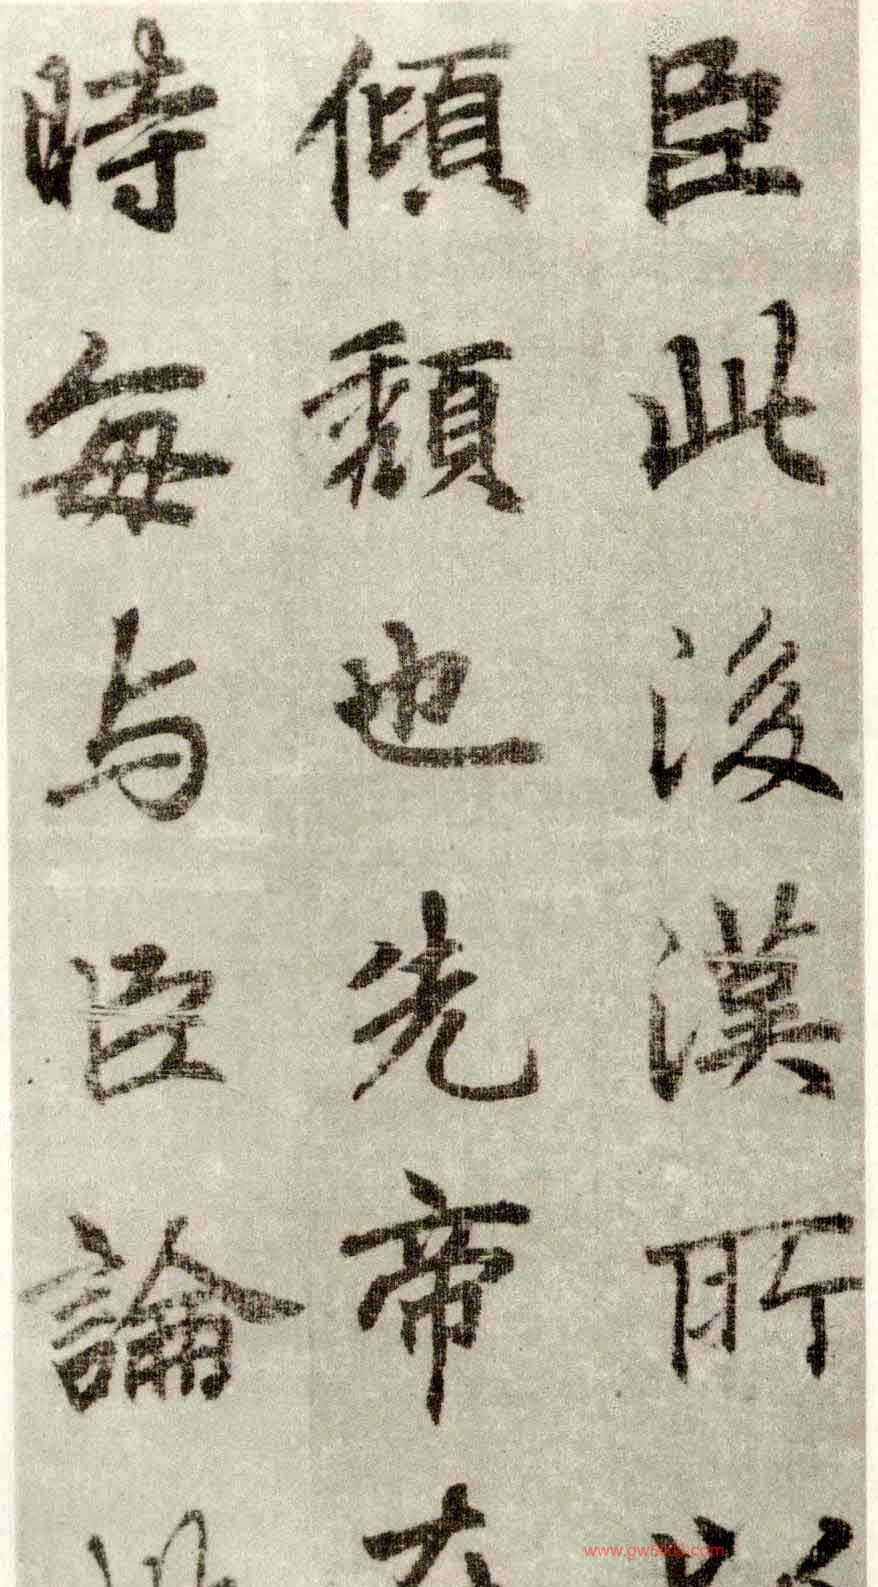 臣此後漢所以
傾頹也先帝在
時每与臣論此
www.gw5000.com